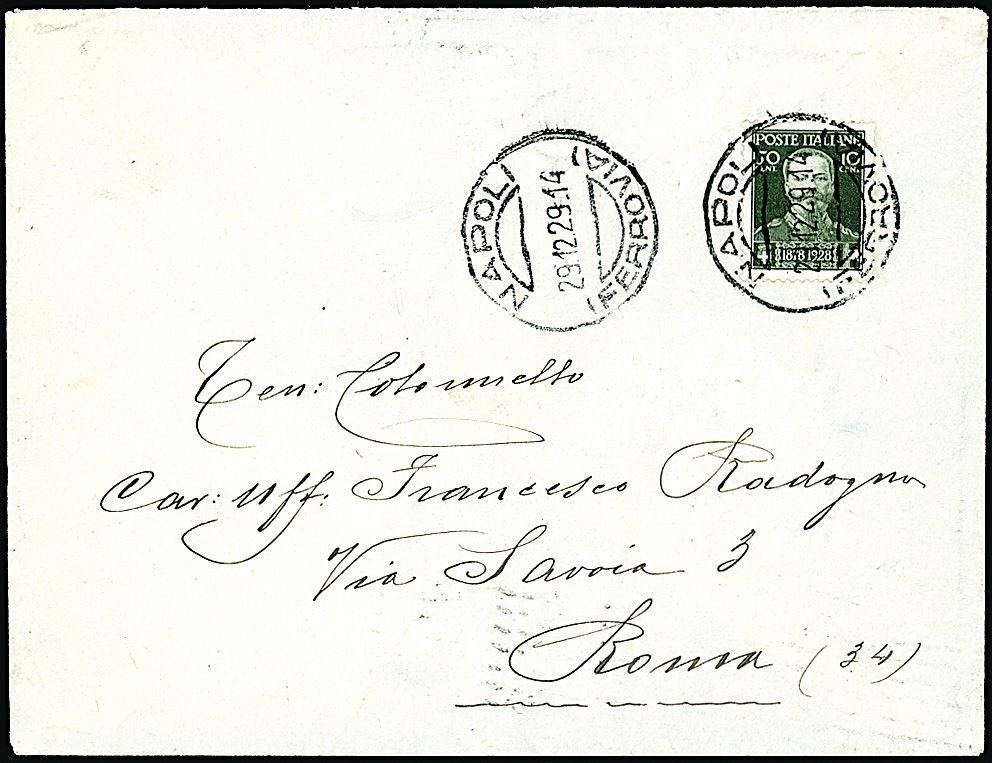 NAPOLI (FERROVIA)
29.12.29.14
NAPOLI (FERROVIA)
12.29.14
POSTE ITALIANE
50 10
CENT. CENT.
1878 1928
Ten: Colonnello
Cav: Uff: Francesco Radogna
Via Savoia 3
Roma (34)